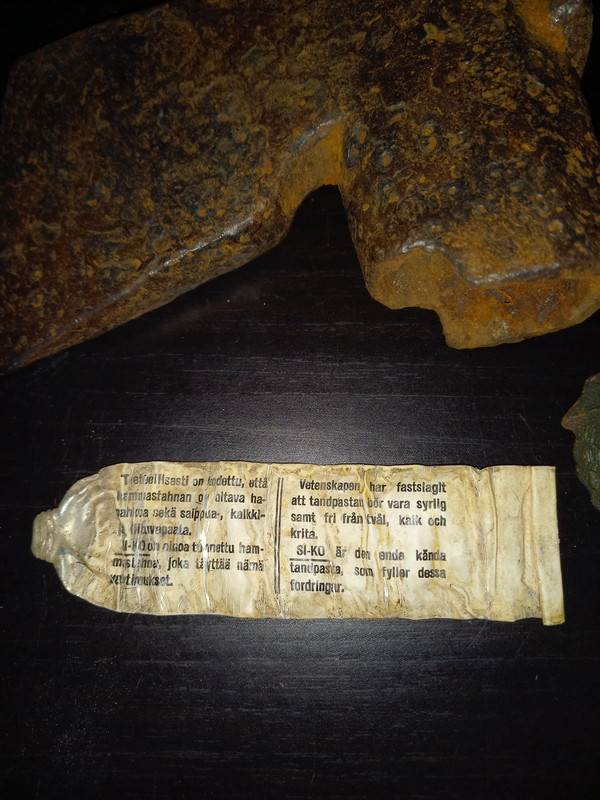 Tieteellisesti on todettu, että
hammastahnan on oltava ha-
pahkoa sekä saippua-, kalkki-
liituvapaata.
SI-KO on ainoa tunnettu ham-
mastahna, joka täyttää nämä
vaatimukset.
Vetenskapen har fastslagit
att tandpastan bör vara syrlig
samt fri från tvål, kalk och
krita.
SI-KO är den enda kända
tandpasta, som fyller dessa
fordringar.